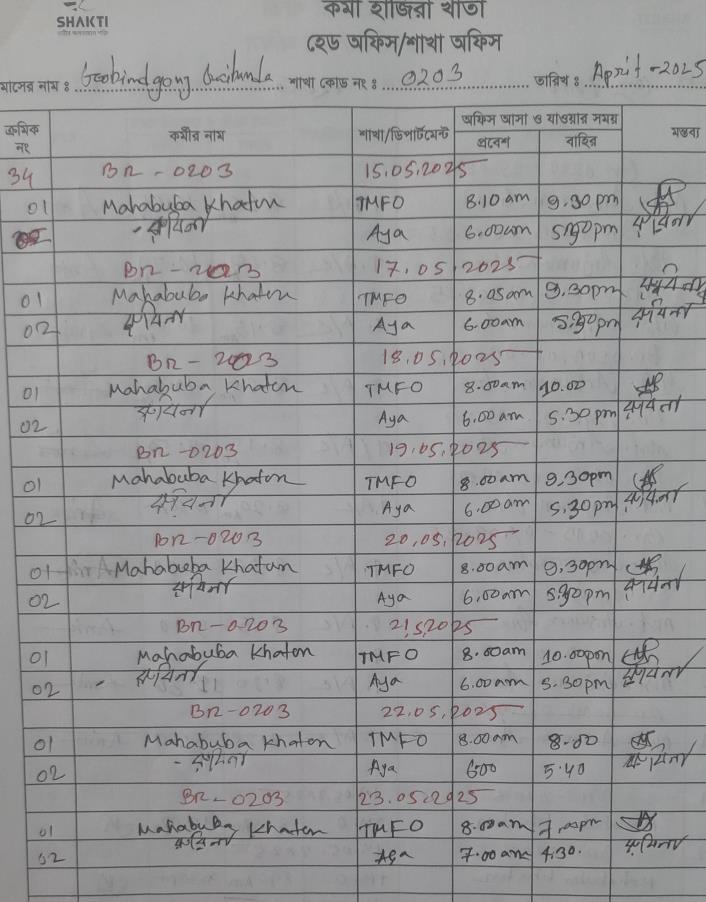 SHAKTI
কর্মী হাজিরা খাতা
হেড অফিস/শাখা অফিস
মাসের নাম : শাখা কোড নং : 0203 তারিখ : April-2025
ক্রমিক নং কর্মীর নাম শাখা/ডিপার্টমেন্ট অফিস আসা ও যাওয়ার সময় মন্তব্য
প্রবেশ বাহির
34 BR-0203 15.05.2025
01 Mahabuba Khaton TMFO 8.10 am 9.30 pm
02 Aya 6.00am 5.30pm
BR-2023 17.05.2025
01 Mahabuba Khaton TMFO 8.05am 9.30pm
02 Aya 6.00am 5.30pm
BR-2023 18.05.2025
01 Mahabuba Khaton TMFO 8.00am 10.00
02 Aya 6.00am 5.30pm
BR-0203 19.05.2025
01 Mahabuba Khaton TMFO 8.00am 9.30pm
02 Aya 6.00am 5.30pm
BR-0203 20.05.2025
01 Mahabuba Khatun TMFO 8.00am 9.30pm
02 Aya 6.00am 5.30pm
BR-0203 21.5.2025
01 Mahabuba Khaton TMFO 8.00am 10.00pm
02 Aya 6.00am 5.30pm
BR-0203 22.05.2025
01 Mahabuba Khaton TMFO 8.00am 8.00
02 Aya 600 5.40
BR-0203 23.05.2025
01 Mahabuba Khaton TMFO 8.00am 7.00pm
02 Aya 7.00am 4.30.